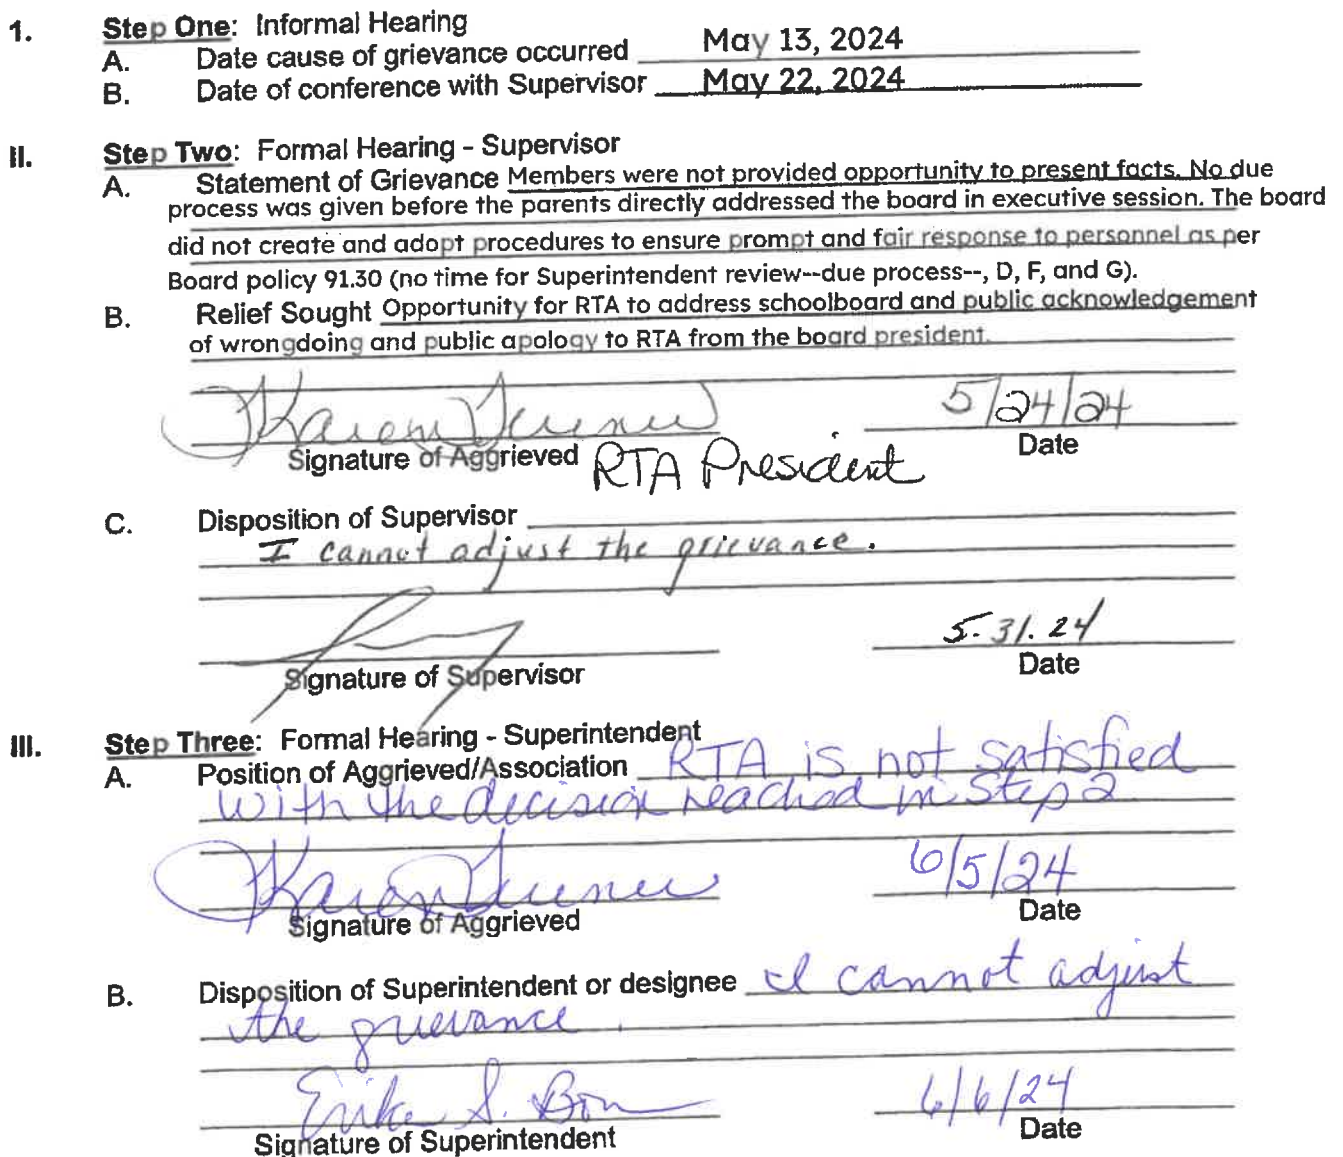 1. Step One: Informal Hearing
A. Date cause of grievance occurred May 13, 2024
B. Date of conference with Supervisor May 22, 2024
II. Step Two: Formal Hearing - Supervisor
A. Statement of Grievance Members were not provided opportunity to present facts. No due
process was given before the parents directly addressed the board in executive session. The board
did not create and adopt procedures to ensure prompt and fair response to personnel as per
Board policy 91.30 (no time for Superintendent review--due process--, D, F, and G).
B. Relief Sought Opportunity for RTA to address schoolboard and public acknowledgement
of wrongdoing and public apology to RTA from the board president.
Karen 5/24/24
Signature of Aggrieved RTA President Date
C. Disposition of Supervisor
I cannot adjust the grievance.
5.31.24
Signature of Supervisor Date
III. Step Three: Formal Hearing - Superintendent
A. Position of Aggrieved/Association RTA is not satisfied
with the decision reached in Step 2
Karen 6/5/24
Signature of Aggrieved Date
B. Disposition of Superintendent or designee I cannot adjust
the grievance.
Erika S. 6/6/24
Signature of Superintendent Date